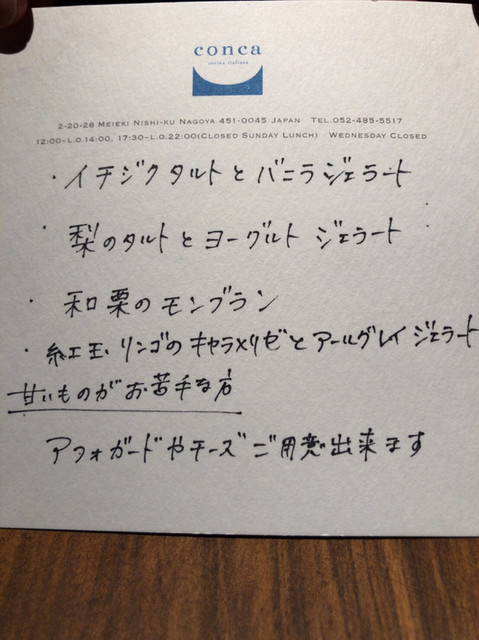 conca
cucina italiana
2-20-28 Meieki Nishi-ku Nagoya 451-0045 Japan Tel.052-485-5517
12:00-L.O.14:00, 17:30-L.O.22:00(Closed Sunday Lunch) Wednesday Closed
・イチジクタルトとバニラジェラート
・梨のタルトとヨーグルト ジェラート
・和栗のモンブラン
・紅玉リンゴのキャラメリゼとアールグレイジェラート
甘いものがお苦手な方
アフォガードやチーズご用意出来ます